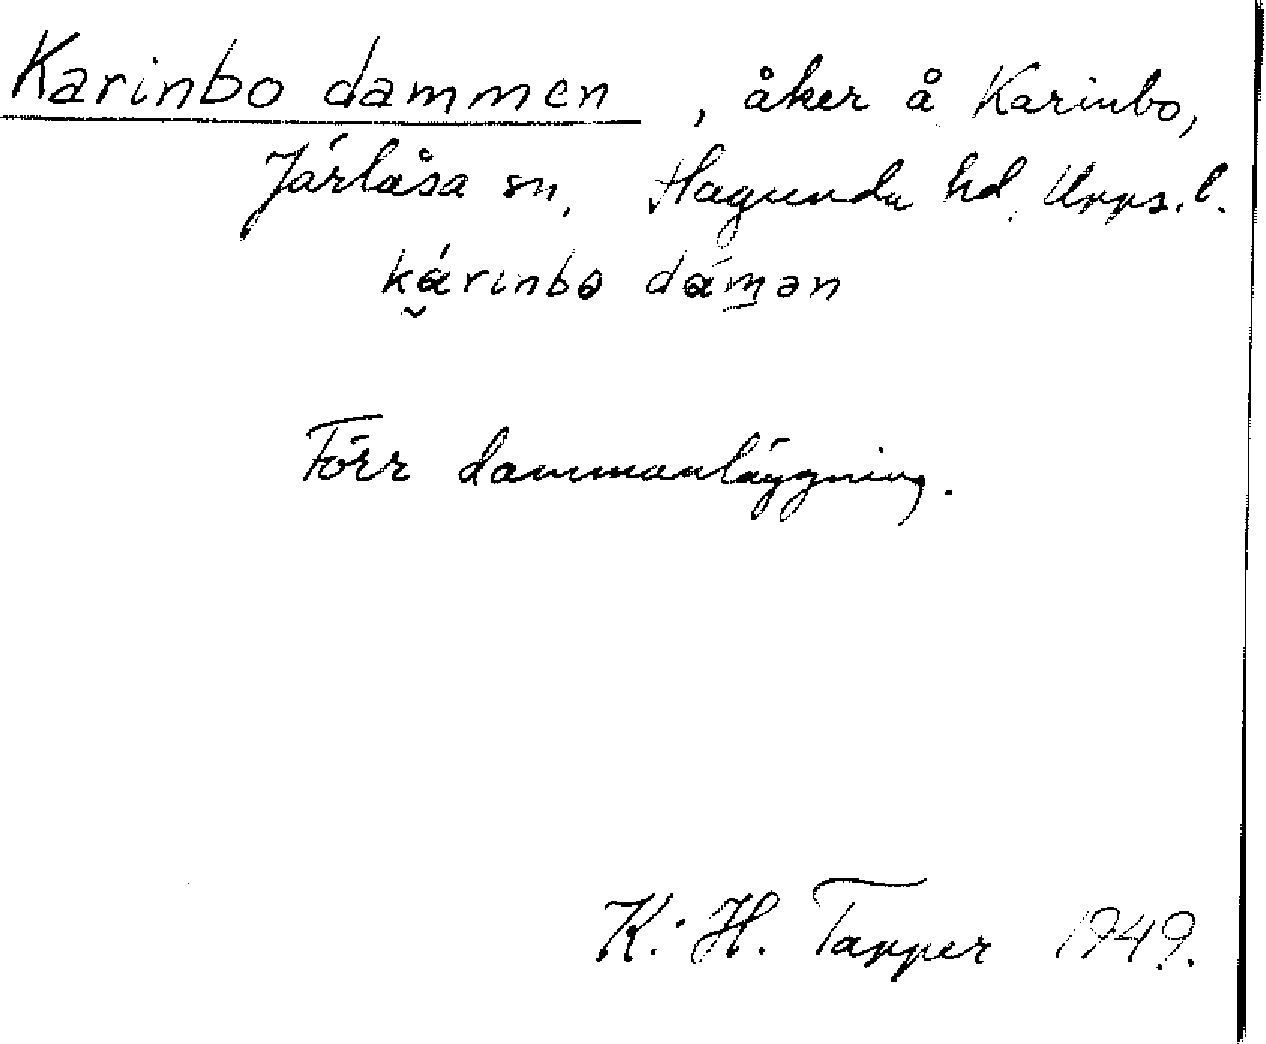 Karinbo dammen, åker å Karinbo,
Järlåsa sn, Hagunda hd. Upps. l.
kárinbo dámən
Förr dammanläggning.
K.-H. Tapper 1949.